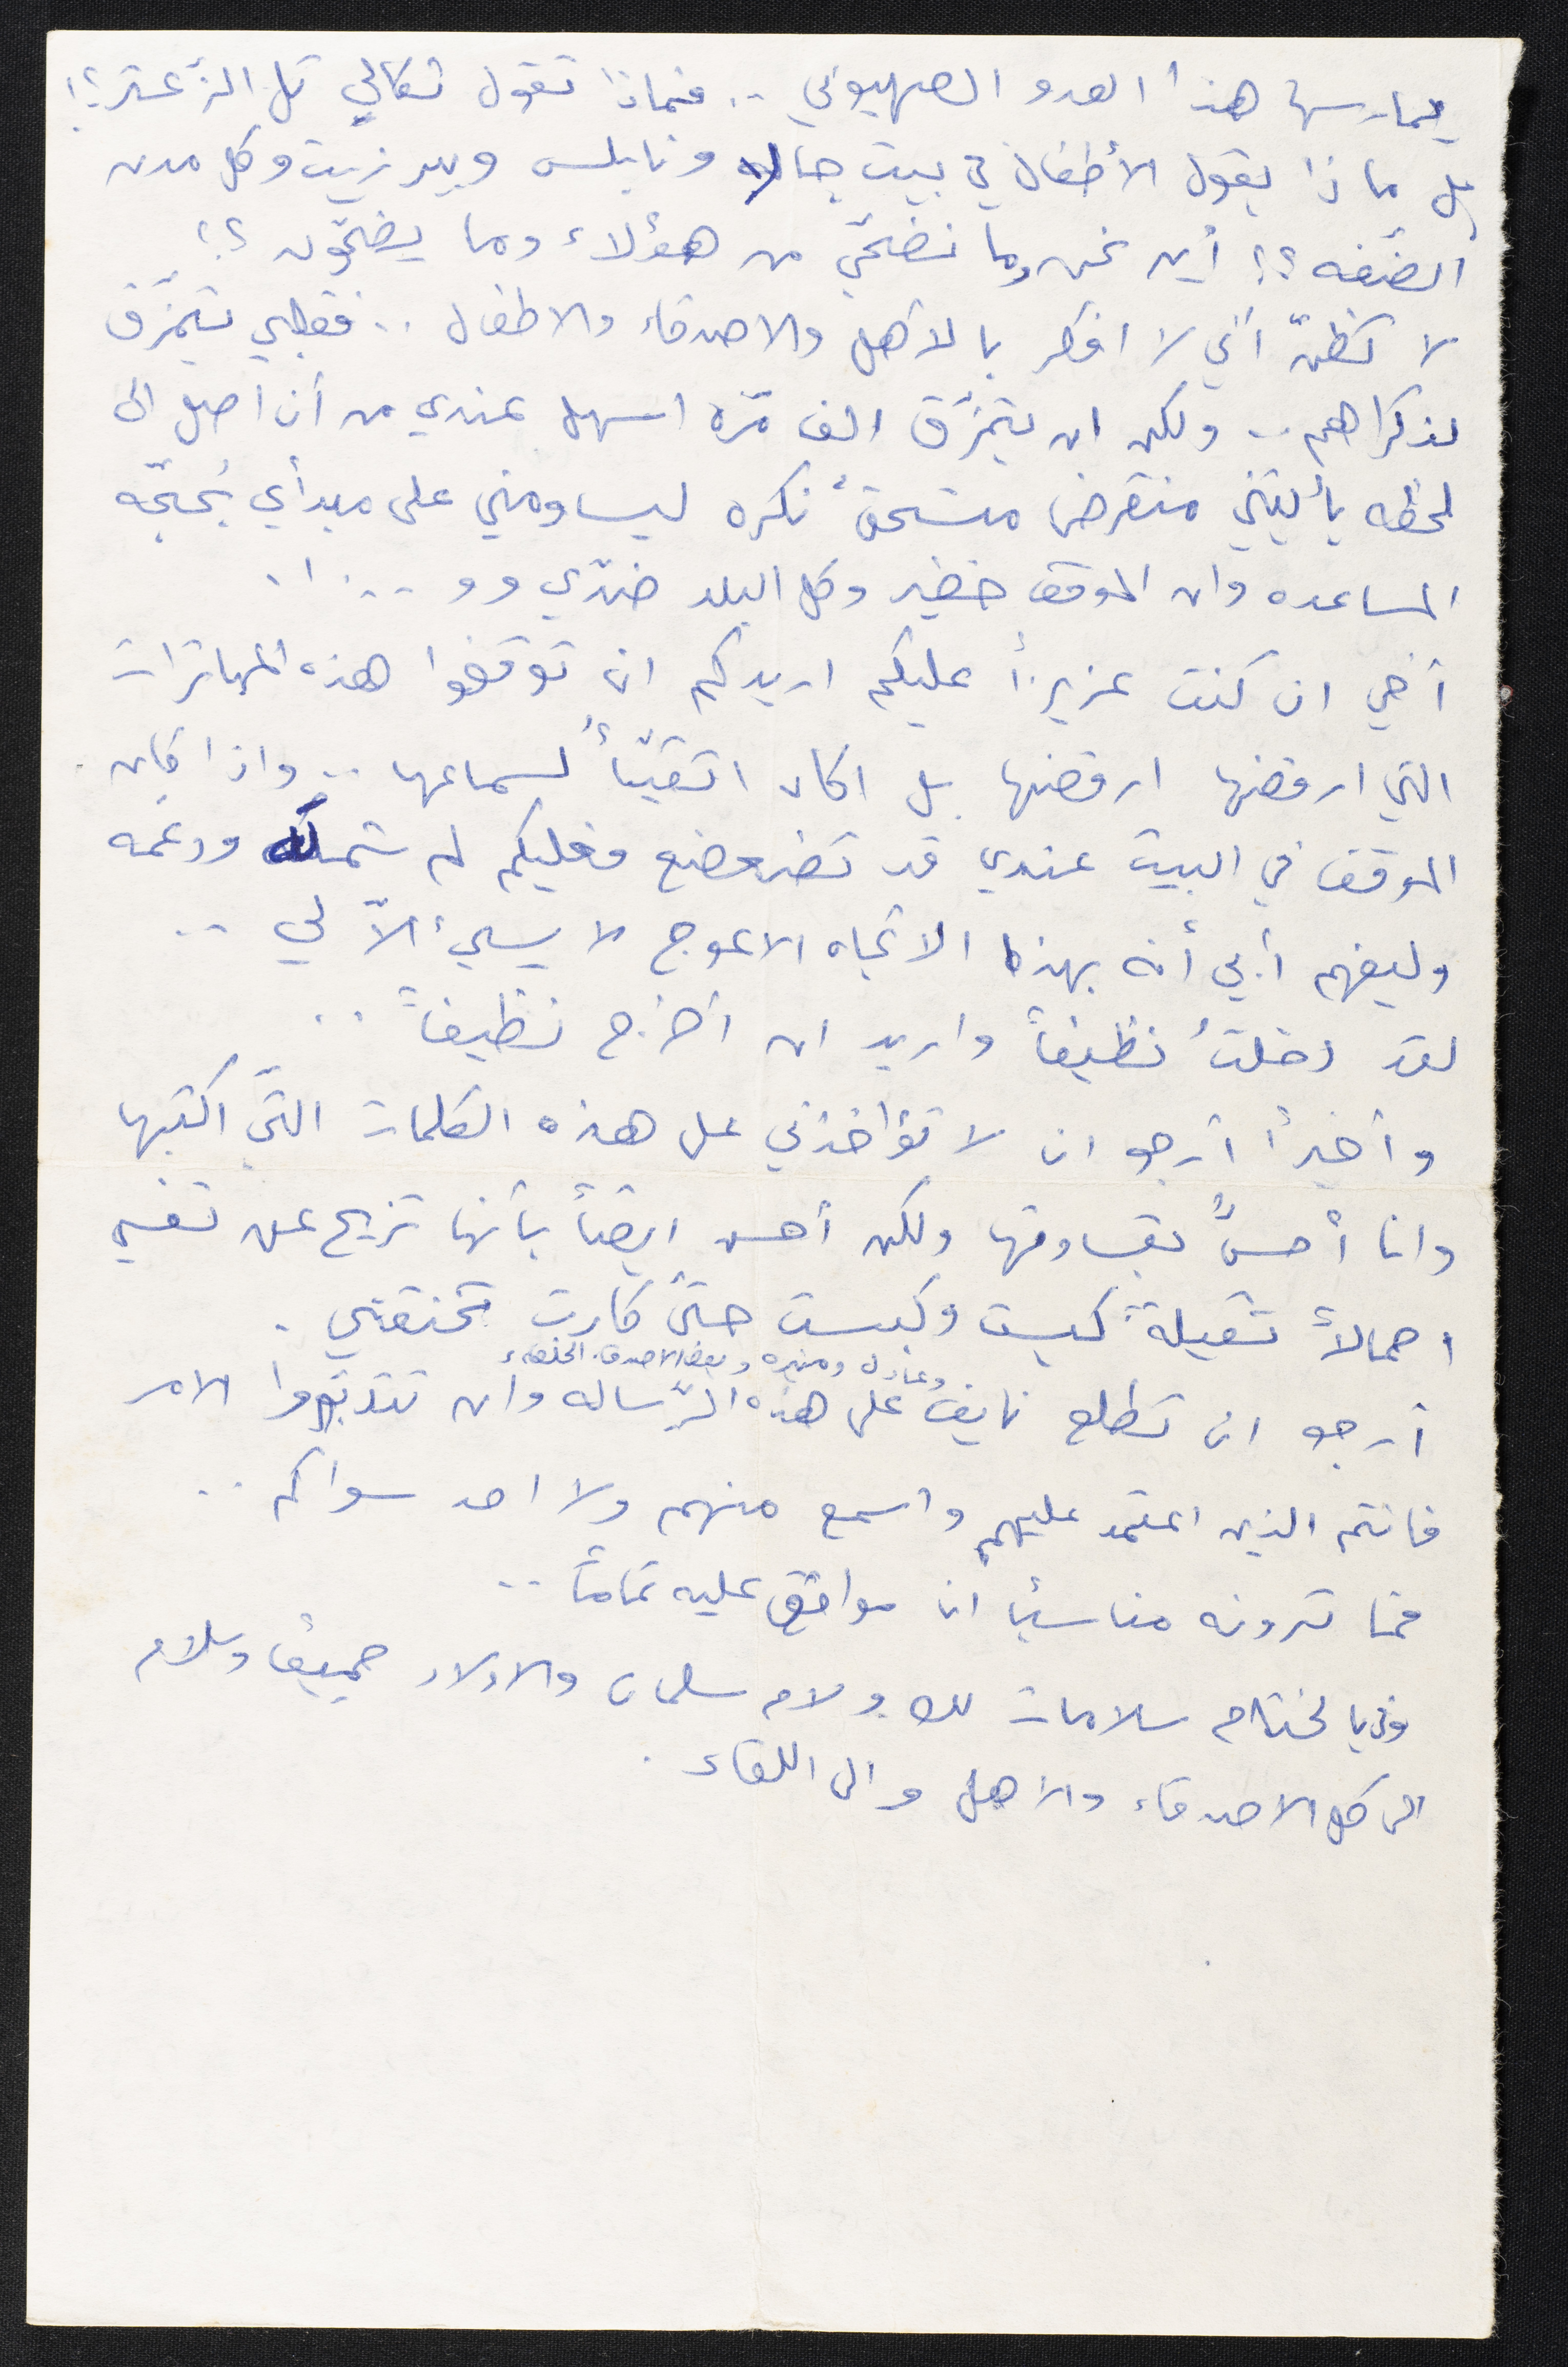 يمارسها هذا العدو الصهيوني .. فماذا تقول ثكالي تل الزعتر؟!
بل ماذا يقول الأطفال في بيت جالا ونابلس وبيرزيت وكل مدن
الضفه ؟! أين نحن وما نضحّي من هؤلاء وما يضحّون ؟!
لا تظنّ أنّي لا افكر بالأهل والاصدقاء والاطفال .. فقلبي يتمزّق
لذكراهم .. ولكن ان يتمزّق الف مرّه اسهل عندي من أن اصل الى
لحظه يأتيني منقرض نكره ليساومني على مبدأي بحجّه
المساعده وان الموقف خطير وكل البلد ضدّي وو ...
أخي ان كنت عزيزاً عليكم اريدكم ان توقفوا هذه المهاترات
التي ارفضها ارفضها بل اكاد اتقيّأُ لسماعها .. واذا كان
الموقف في البيت عندي قد تضعضع فعليكم لم شمله ودعمه
وليفهم أبي أنه بهذا الاتجاه الاعوج لا يسيءُ الّا لي ..
لقد دخلتُ نظيفاً واريد ان أخرج نظيفاً ..
وأخيراً أرجو ان لا تؤاخذني على هذه الكلمات التّي اكتبها
وانا أحسُّ بقساوتها ولكن أحس ايضاً بأنها تزيح عن نفسي
احمالاً ثقيلةً كبست وكبست حتّى كادت تخنقني .
أرجو ان تطلع نايف وعادل ومنيره وبعض الاصدقاء الخلصاء على هذه الرّساله وان تتدبّروا الامر
فانتم الذين اعتمد عليهم واسمع منهم ولا احد سواكم ..
فما ترونه مناسباً انا موافق عليه تماماً ..
وفي الختام سلامات لك ولام سلمان والاولاد جميعاً وسلام
الى كل الاصدقاء والأهل والى اللقاء .